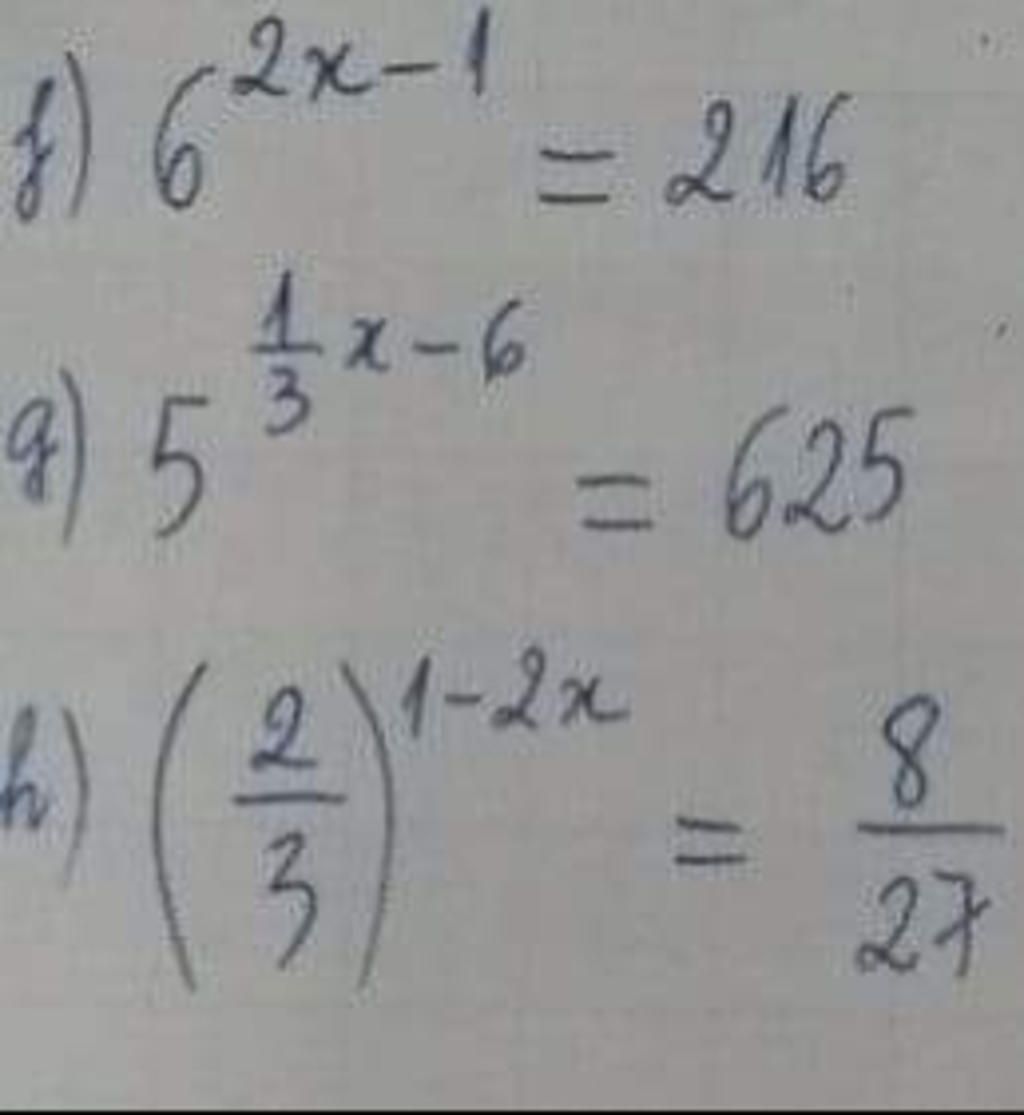 f) 6^{2x-1} = 216
g) 5^{\frac{1}{3}x-6} = 625
h) \left(\frac{2}{3}\right)^{1-2x} = \frac{8}{27}